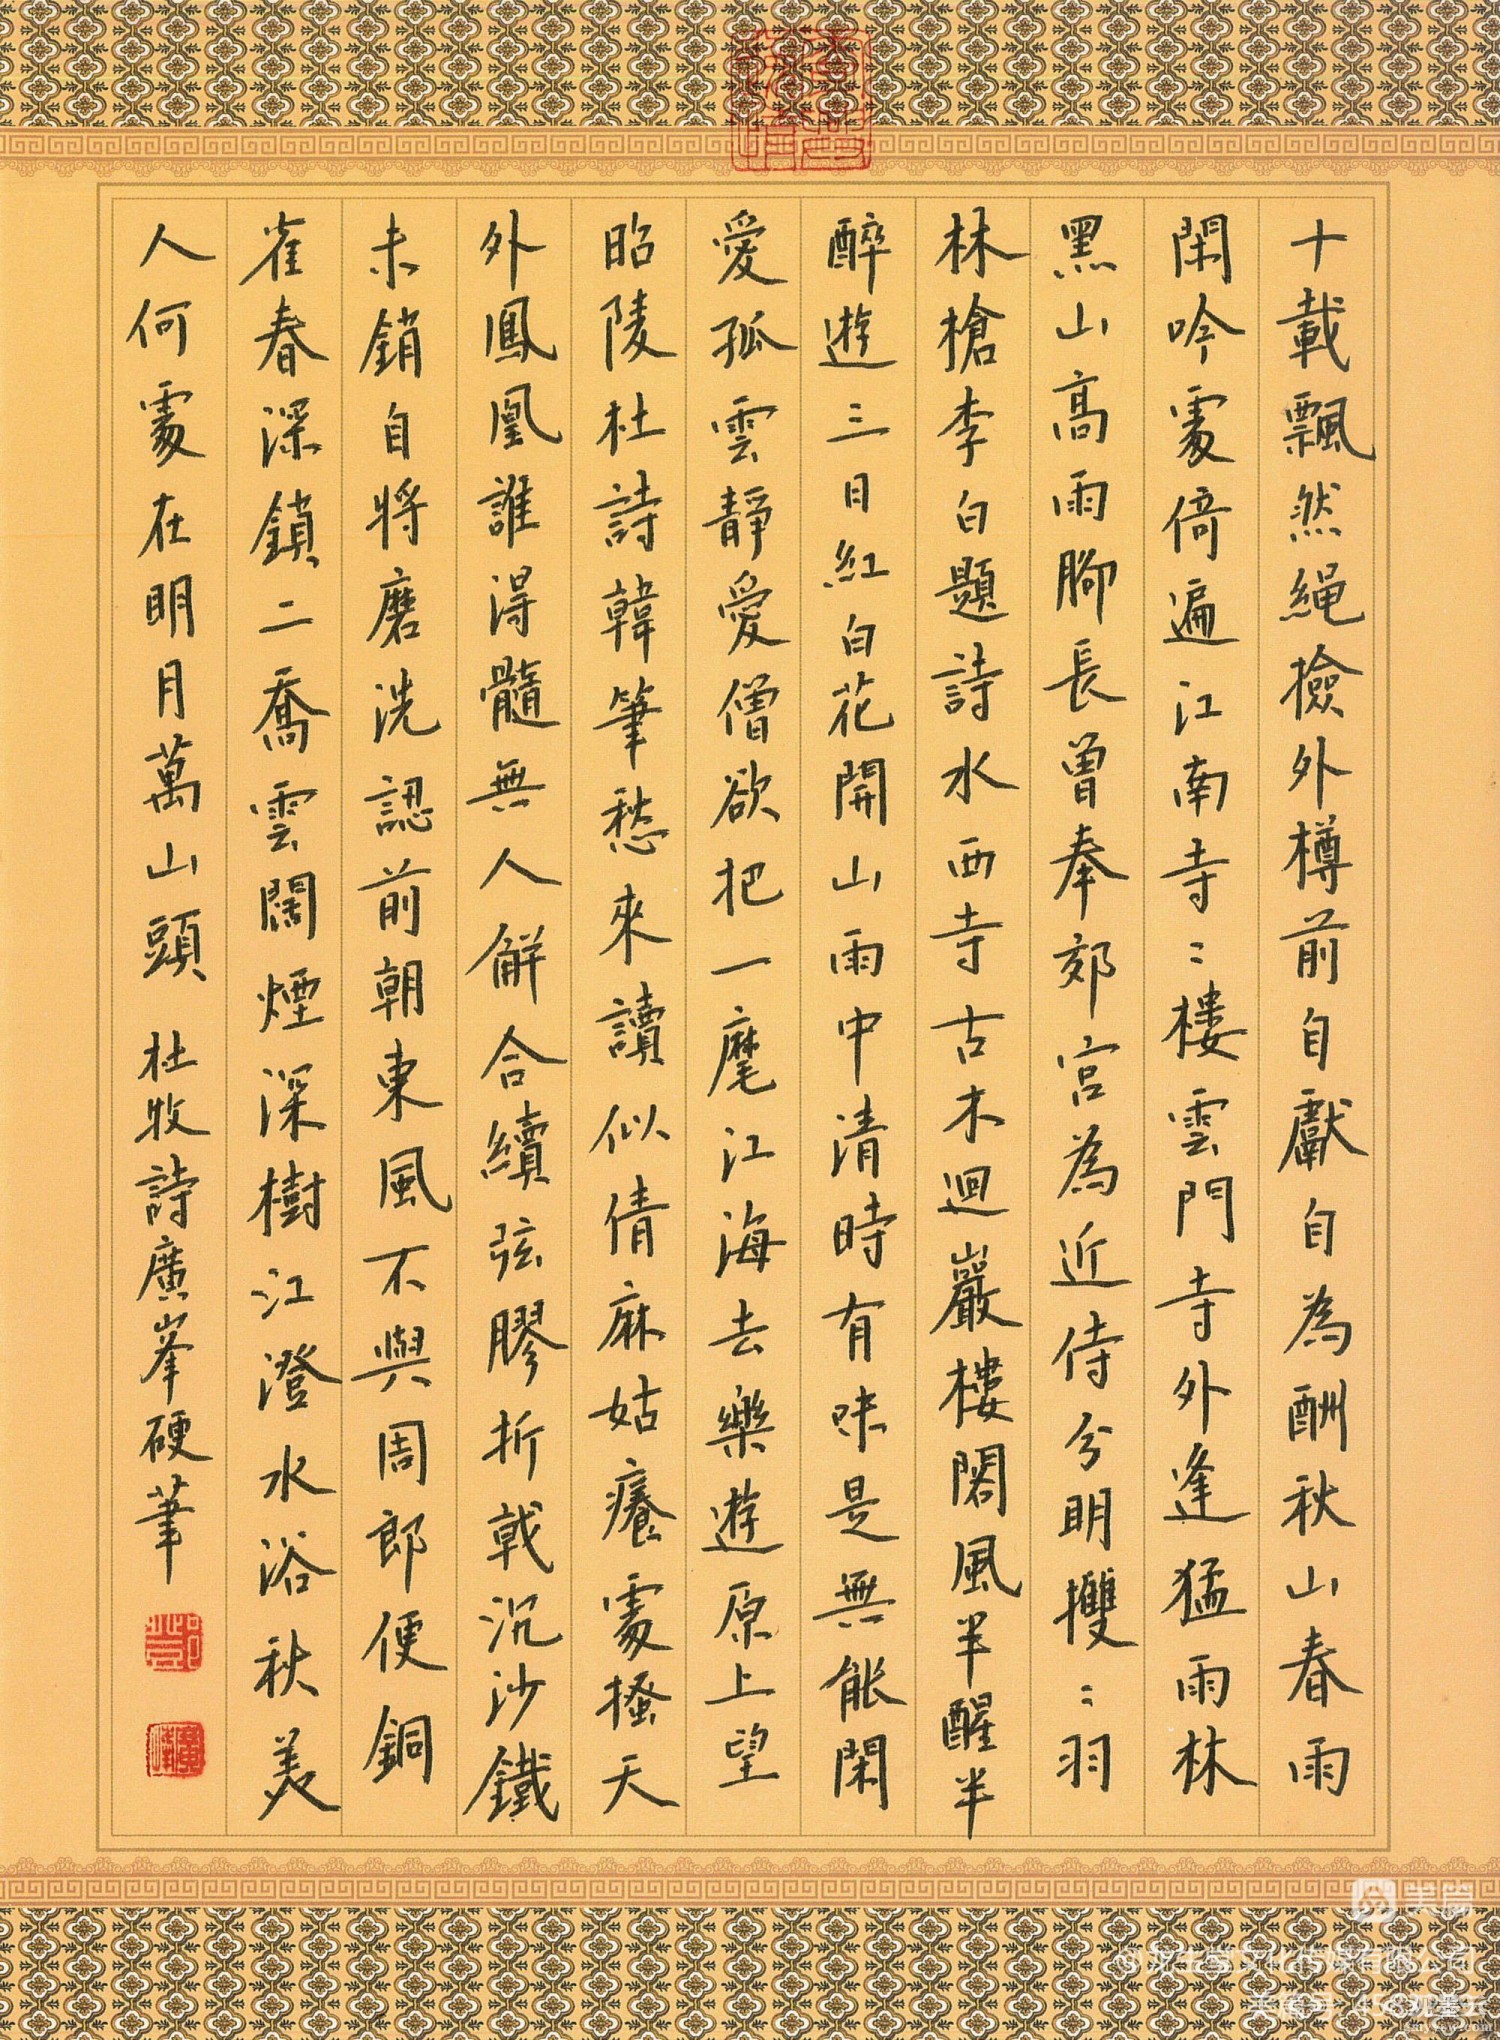 十載飄然繩撿外樽前自獻自為酬秋山春雨
閑吟處倚遍江南寺〻樓雲門寺外逢猛雨林
黑山高雨腳長曾奉郊宮為近侍分明㩳〻羽
林槍李白題詩水西寺古木迴巖樓閣風半醒半
醉遊三日紅白花開山雨中清時有味是無能閑
愛孤雲靜愛僧欲把一麾江海去樂遊原上望
昭陵杜詩韓筆愁來讀似倩麻姑癢處搔天
外鳳凰誰得髓無人解合續弦膠折戟沉沙鐵
未銷自將磨洗認前朝東風不與周郎便銅
雀春深鎖二喬雲闊煙深樹江澄水浴秋美
人何處在明月萬山頭 杜牧詩廣峯硬筆
美篇